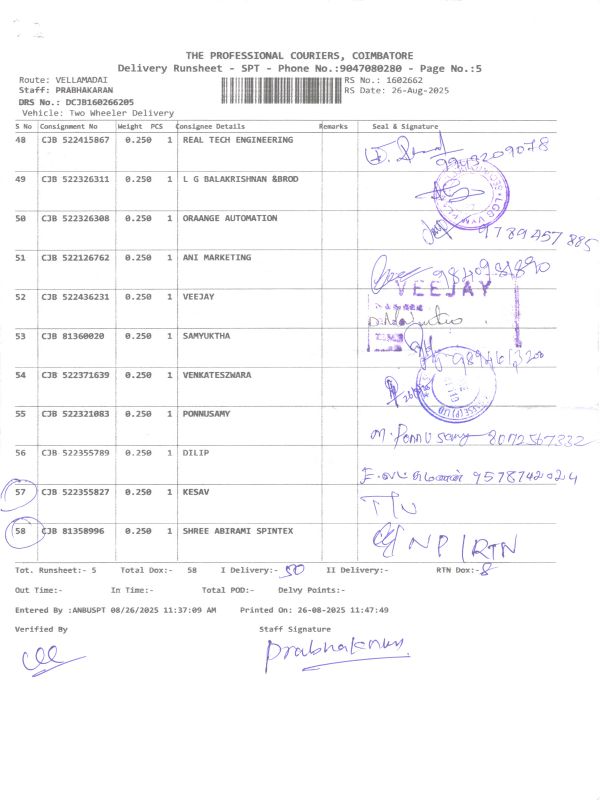 THE PROFESSIONAL COURIERS, COIMBATORE
Delivery Runsheet - SPT - Phone No.:9047080280 - Page No.:5
Route: VELLAMADAI RS No.: 1602662
Staff: PRABHAKARAN RS Date: 26-Aug-2025
DRS No.: DCJB160266205
Vehicle: Two Wheeler Delivery
S No Consignment No Weight PCS Consignee Details Remarks Seal & Signature
48 CJB 522415867 0.250 1 REAL TECH ENGINEERING
49 CJB 522326311 0.250 1 L G BALAKRISHNAN &BROD
50 CJB 522326308 0.250 1 ORAANGE AUTOMATION
9789457885
51 CJB 522126762 0.250 1 ANI MARKETING
52 CJB 522436231 0.250 1 VEEJAY
VEEJAY
53 CJB 81360020 0.250 1 SAMYUKTHA
54 CJB 522371639 0.250 1 VENKATESZWARA
55 CJB 522321083 0.250 1 PONNUSAMY
M. Ponnusamy
56 CJB 522355789 0.250 1 DILIP
9578742024
57 CJB 522355827 0.250 1 KESAV
58 CJB 81358996 0.250 1 SHREE ABIRAMI SPINTEX NP/RTN
Tot. Runsheet:- 5 Total Dox:- 58 I Delivery:- 50 II Delivery:- RTN Dox:- 8
Out Time:- In Time:- Total POD:- Delvy Points:-
Entered By :ANBUSPT 08/26/2025 11:37:09 AM Printed On: 26-08-2025 11:47:49
Verified By Staff Signature
Prabhakaran